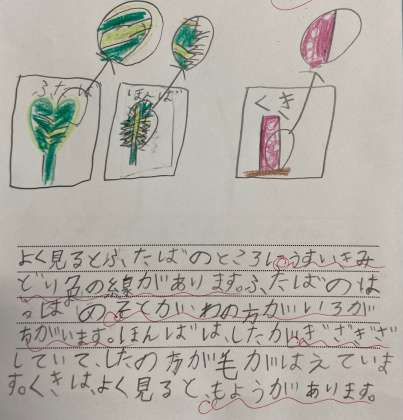 ふたば
ほんば
くき
よく見るとふたばのところにうすいきみ
どり色の線があります。ふたばのは
っぱのそとがわの方がいろが
ちがいます。ほんばは、したがぎざぎざ
していて、したの方が毛がはえていま
す。くきは、よく見ると、もようがあります。